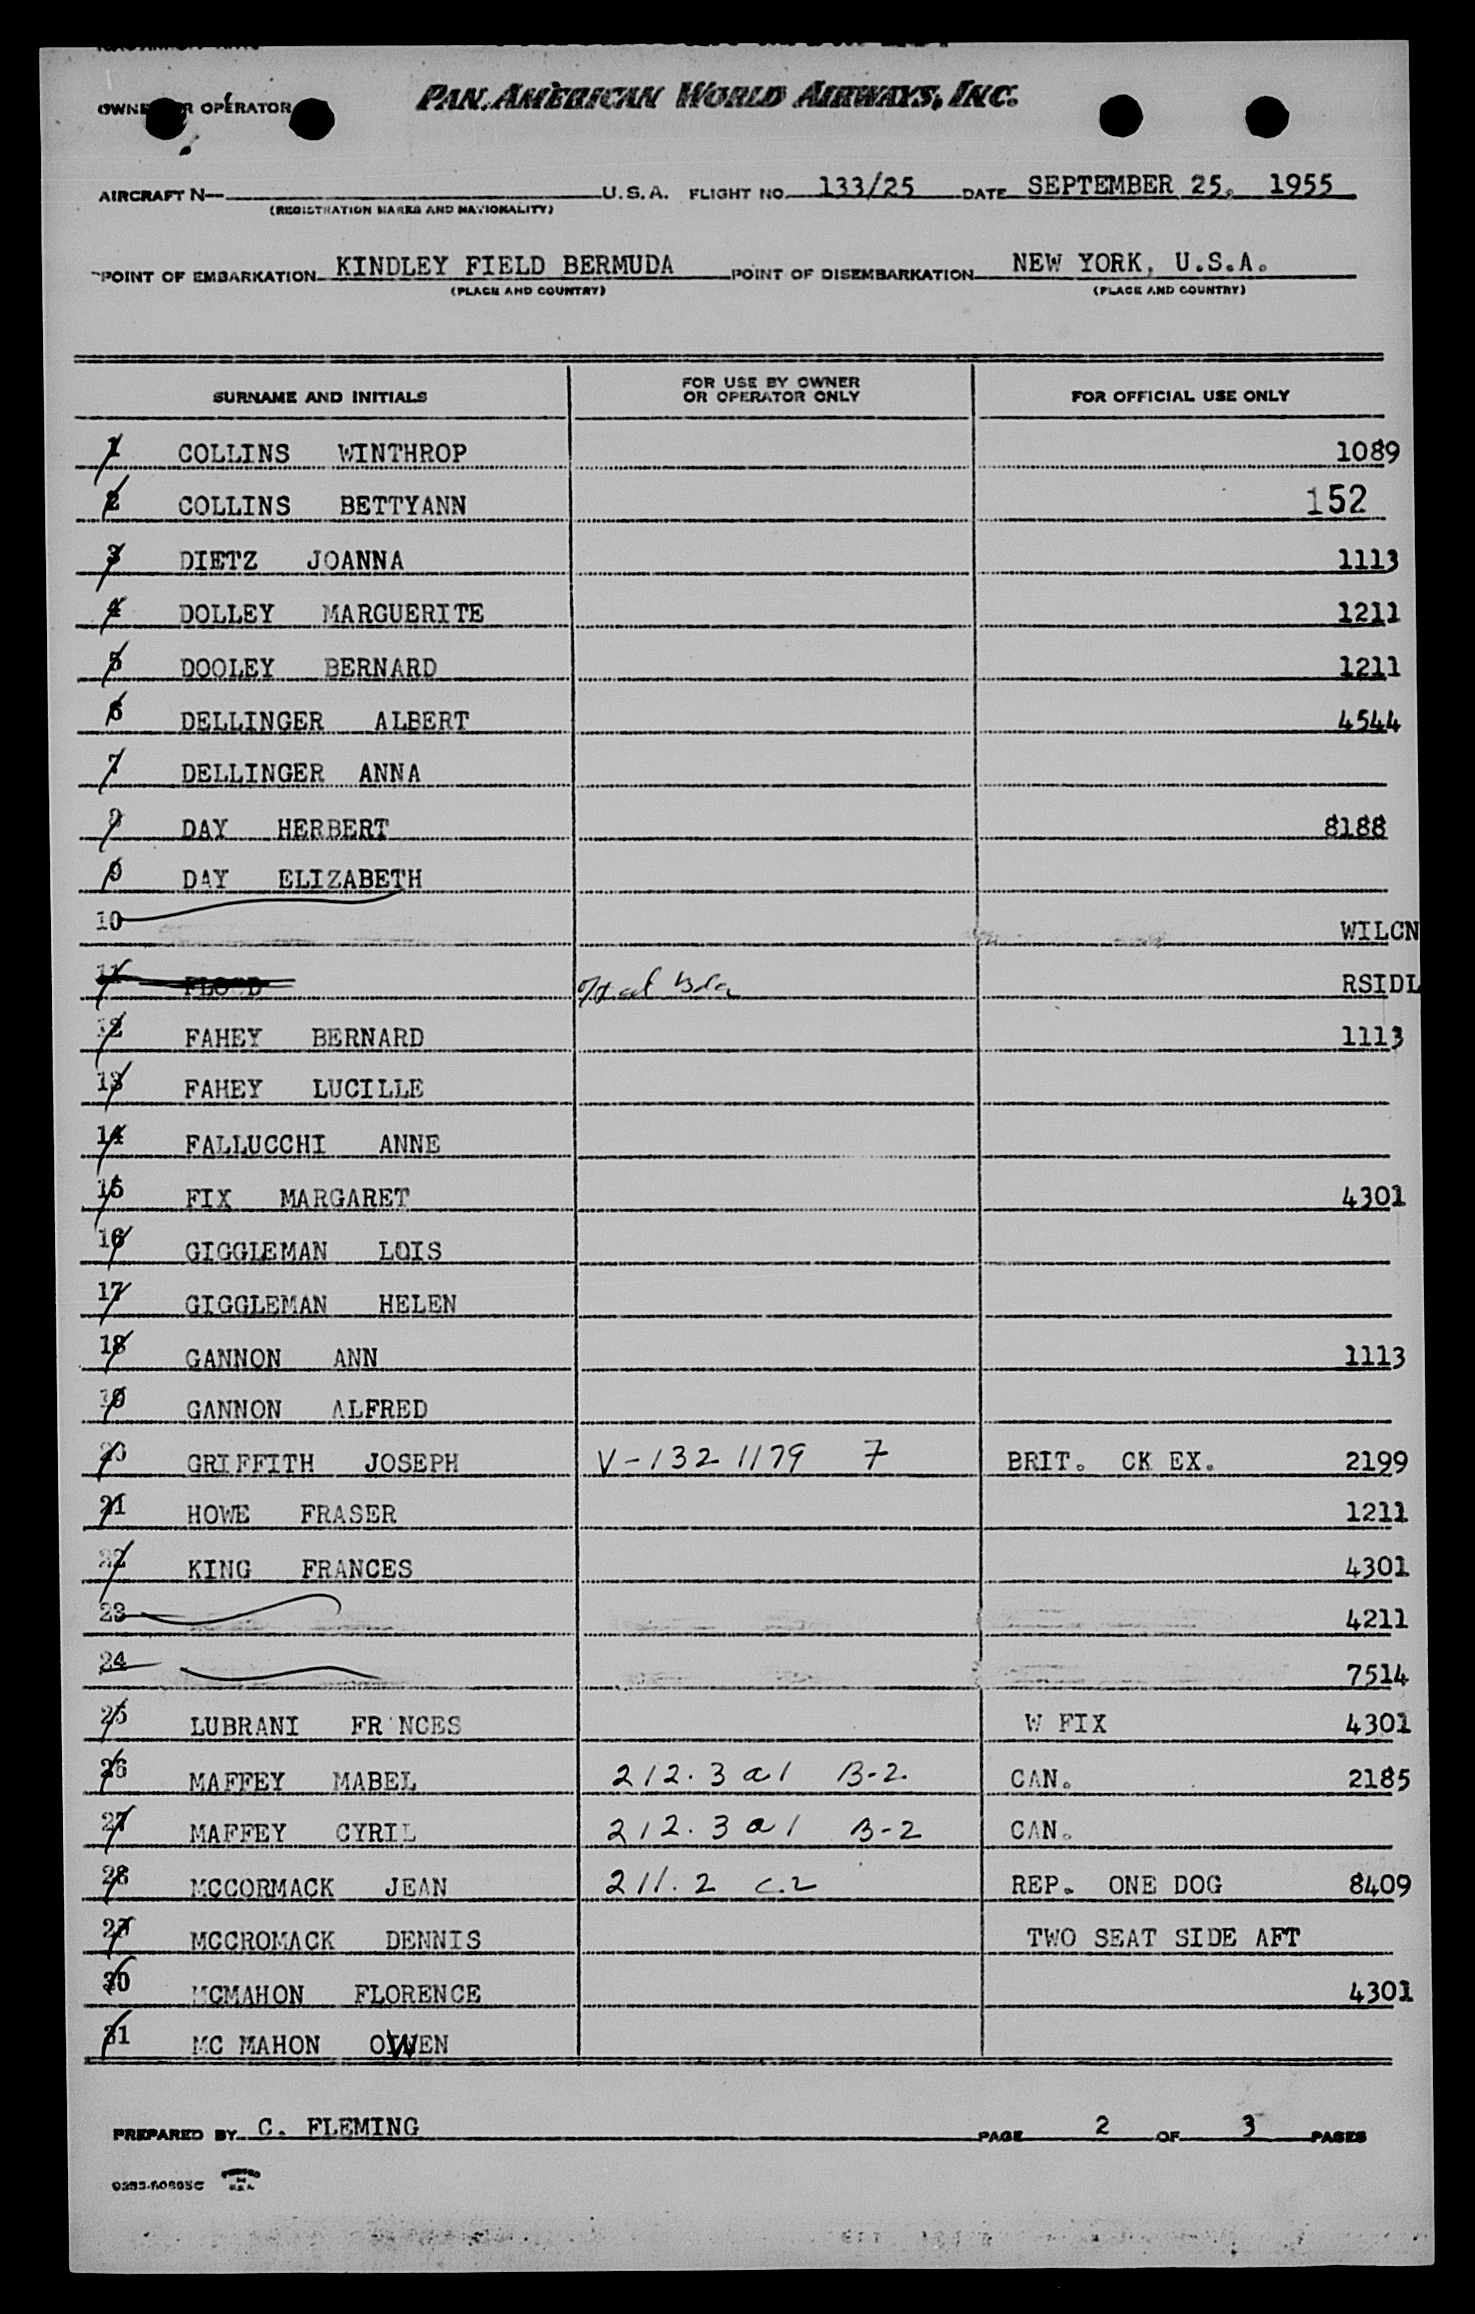 OWNER OR OPERATOR PAN AMERICAN WORLD AIRWAYS, INC.
AIRCRAFT N— U.S.A. FLIGHT NO. 133/25 DATE SEPTEMBER 25, 1955
(REGISTRATION MARKS AND NATIONALITY)
POINT OF EMBARKATION KINDLEY FIELD BERMUDA POINT OF DISEMBARKATION NEW YORK, U.S.A.
(PLACE AND COUNTRY) (PLACE AND COUNTRY)
SURNAME AND INITIALS FOR USE BY OWNER OR OPERATOR ONLY FOR OFFICIAL USE ONLY
1 COLLINS WINTHROP 1089
2 COLLINS BETTYANN 152
3 DIETZ JOANNA 1113
4 DOLLEY MARGUERITE 1211
5 DOOLEY BERNARD 1211
6 DELLINGER ALBERT 4544
7 DELLINGER ANNA
8 DAY HERBERT 8188
9 DAY ELIZABETH
10 WILCN
11 FLOOD Bda RSIDL
12 FAHEY BERNARD 1113
13 FAHEY LUCILLE
14 FALLUCCHI ANNE
15 FIX MARGARET 4301
16 GIGGLEMAN LOIS
17 GIGGLEMAN HELEN
18 GANNON ANN 1113
19 GANNON ALFRED
20 GRIFFITH JOSEPH V-132 1179 7 BRIT. CK EX. 2199
21 HOWE FRASER 1211
22 KING FRANCES 4301
23 4211
24 7514
25 LUBRANI FR NCES W FIX 4301
26 MAFFEY MABEL 212.3 a1 B-2. CAN. 2185
27 MAFFEY CYRIL 212.3 a1 B-2 CAN.
28 MCCORMACK JEAN 211.2 C.2 REP. ONE DOG 8409
29 MCCROMACK DENNIS TWO SEAT SIDE AFT
30 MCMAHON FLORENCE 4301
31 MC MAHON OWEN
PREPARED BY C. FLEMING PAGE 2 OF 3 PAGES
PRINTED IN U.S.A.